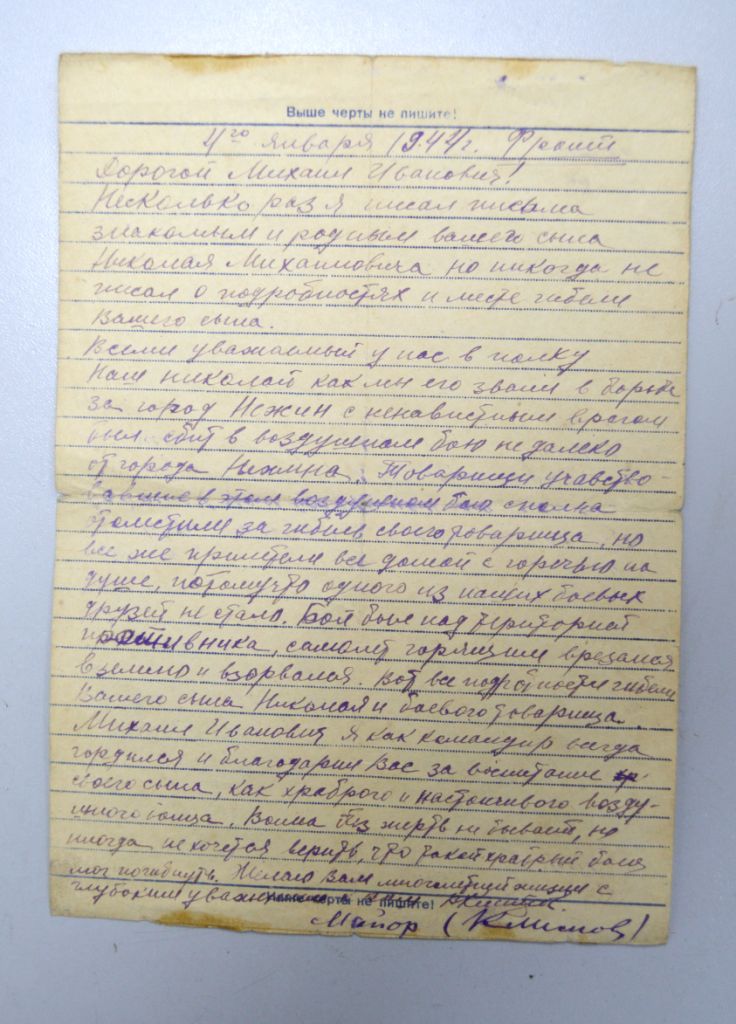 Выше черты не пишите!
4го января 1944г. Фронт
Дорогой Михаил Иванович!
Несколько раз я писал письма
знакомым и родным вашего сына
Николая Михайловича но никогда не
писал о подробностях и месте гибели
Вашего сына.
Всеми уважаемый у нас в полку
Наш николай как мы его звали в борьбе
за город Нежин с ненавистным врагом
был сбит в воздушном бою не далеко
от города Нежина. Товарищи учавство-
вавшие в этом воздушном бою сполна
отомстили за гибель своего товарища, но
все же прилетели все домой с горечью на
душе, потому что одного из наших боевых
друзей не стало. Бой был над територией
противника, самолет горящим врезался
в землю и взорвался. Вот все подробности гибели
Вашего сына Николая и боевого товарища.
Михаил Иванович я как командир всегда
гордился и благодарил Вас за воспитание
своего сына, как храброго и настойчивого возду-
шного бойца. Война без жертв не бывает, но
иногда не хочется верить, что такой храбрый боец
мог погибнуть. Желаю Вам многолетней жизни с
глубоким уважением
Ниже черты не пишите!
Майор (Климов)